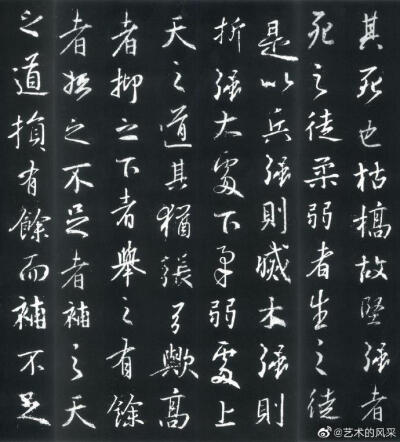 其死也枯槁故堅强者
死之徒柔弱者生之徒
是以兵强則滅木强則
折强大處下柔弱處上
天之道其猶張弓歟高
者抑之下者舉之有餘
者損之不足者補之天
之道損有餘而補不足
@艺术的风采